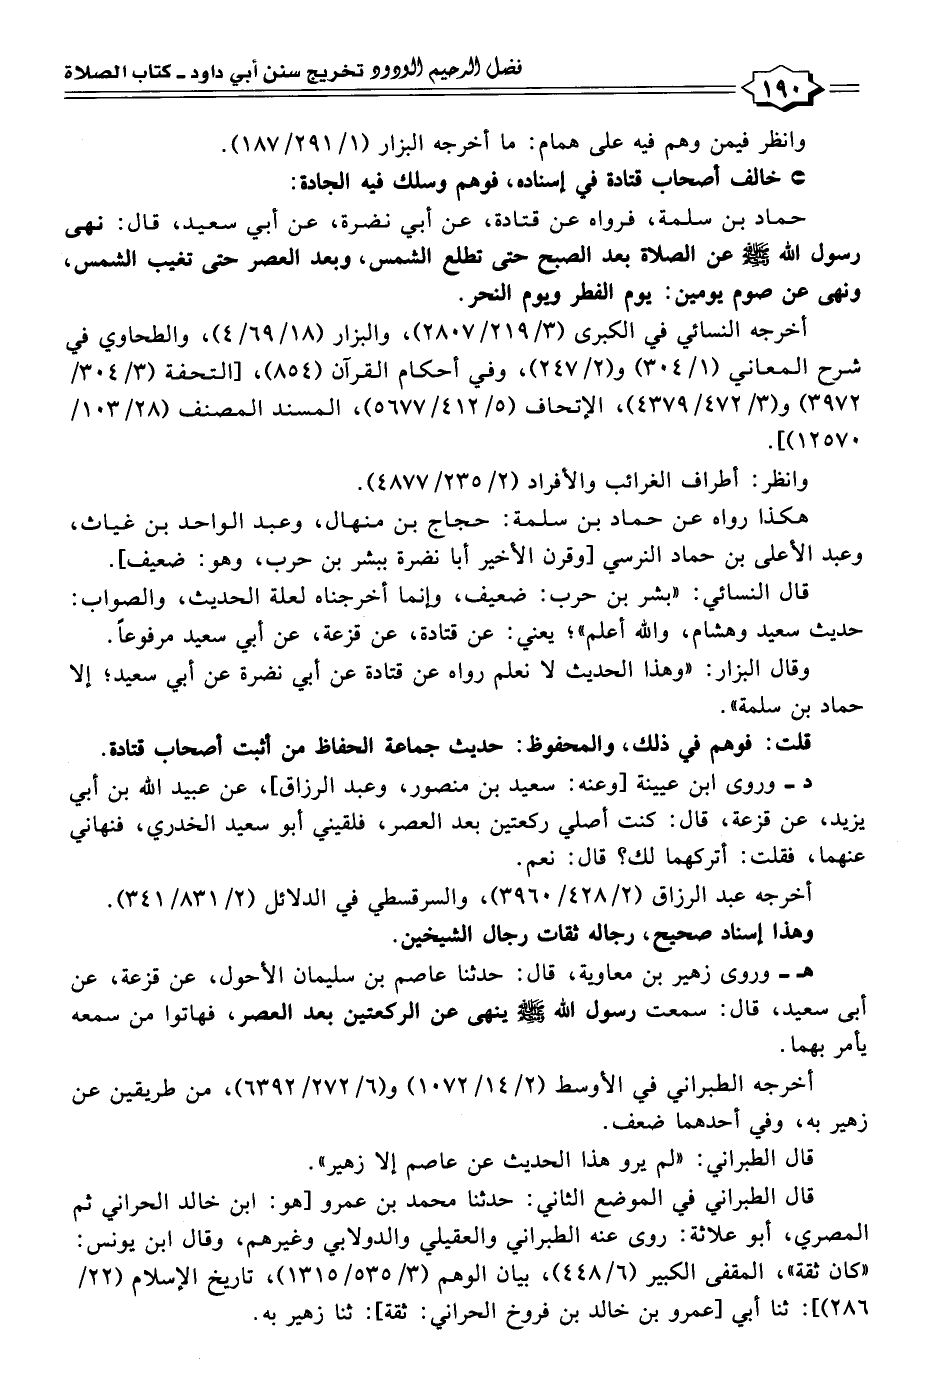 فضل الرحيم الودود تخريج سنن أبي داود ـ كتاب الصلاة
١٩٠
وانظر فيمن وهم فيه على همام: ما أخرجه البزار (١/ ٢٩١/ ١٨٧).
خالف أصحاب قتادة في إسناده، فوهم وسلك فيه الجادة:
حماد بن سلمة، فرواه عن قتادة، عن أبي نضرة، عن أبي سعيد، قال: نهى
رسول الله ﷺ عن الصلاة بعد الصبح حتى تطلع الشمس، وبعد العصر حتى تغيب الشمس،
ونهى عن صوم يومين: يوم الفطر ويوم النحر.
أخرجه النسائي في الكبرى (٣/ ٢١٩/ ٢٨٠٧)، والبزار (١٨/ ٦٩/ ٤)، والطحاوي في
شرح المعاني (١/ ٣٠٤) و(٢/ ٢٤٧)، وفي أحكام القرآن (٨٥٤)، [التحفة (٣/ ٣٠٤/
٣٩٧٢) و(٣/ ٤٧٢/ ٤٣٧٩)، الإتحاف (٥/ ٤١٢/ ٥٦٧٧)، المسند المصنف (٢٨/ ١٠٣/
١٢٥٧٠)].
وانظر: أطراف الغرائب والأفراد (٢/ ٢٣٥/ ٤٨٧٧).
هكذا رواه عن حماد بن سلمة: حجاج بن منهال، وعبد الواحد بن غياث،
وعبد الأعلى بن حماد النرسي [وقرن الأخير أبا نضرة ببشر بن حرب، وهو: ضعيف].
قال النسائي: «بشر بن حرب: ضعيف، وإنما أخرجناه لعلة الحديث، والصواب:
حديث سعيد وهشام، والله أعلم»؛ يعني: عن قتادة، عن قزعة، عن أبي سعيد مرفوعاً.
وقال البزار: «وهذا الحديث لا نعلم رواه عن قتادة عن أبي نضرة عن أبي سعيد؛ إلا
حماد بن سلمة».
قلت: فوهم في ذلك، والمحفوظ: حديث جماعة الحفاظ من أثبت أصحاب قتادة.
د ـ وروى ابن عيينة [وعنه: سعيد بن منصور، وعبد الرزاق]، عن عبيد الله بن أبي
يزيد، عن قزعة، قال: كنت أصلي ركعتين بعد العصر، فلقيني أبو سعيد الخدري، فنهاني
عنهما، فقلت: أتركهما لك؟ قال: نعم.
أخرجه عبد الرزاق (٢/ ٤٢٨/ ٣٩٦٠)، والسرقسطي في الدلائل (٢/ ٨٣١/ ٣٤١).
وهذا إسناد صحيح، رجاله ثقات رجال الشيخين.
هـ ـ وروى زهير بن معاوية، قال: حدثنا عاصم بن سليمان الأحول، عن قزعة، عن
أبي سعيد، قال: سمعت رسول الله ﷺ ينهى عن الركعتين بعد العصر، فهاتوا من سمعه
يأمر بهما.
أخرجه الطبراني في الأوسط (٢/ ١٤/ ١٠٧٢) و(٦/ ٢٧٢/ ٦٣٩٢)، من طريقين عن
زهير به، وفي أحدهما ضعف.
قال الطبراني: «لم يرو هذا الحديث عن عاصم إلا زهير».
قال الطبراني في الموضع الثاني: حدثنا محمد بن عمرو [هو: ابن خالد الحراني ثم
المصري، أبو علاثة: روى عنه الطبراني والعقيلي والدولابي وغيرهم، وقال ابن يونس:
«كان ثقة»، المقفى الكبير (٦/ ٤٤٨)، بيان الوهم (٣/ ٥٣٥/ ١٣١٥)، تاريخ الإسلام (٢٢/
٢٨٦)]: ثنا أبي [عمرو بن خالد بن فروخ الحراني: ثقة]: ثنا زهير به.